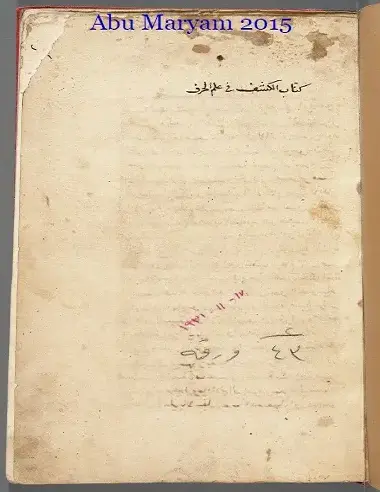 Abu Maryam 2015
كتاب الكشف في علم الحرف
١٩٣١-١١-١٧
٤٣ ورقة